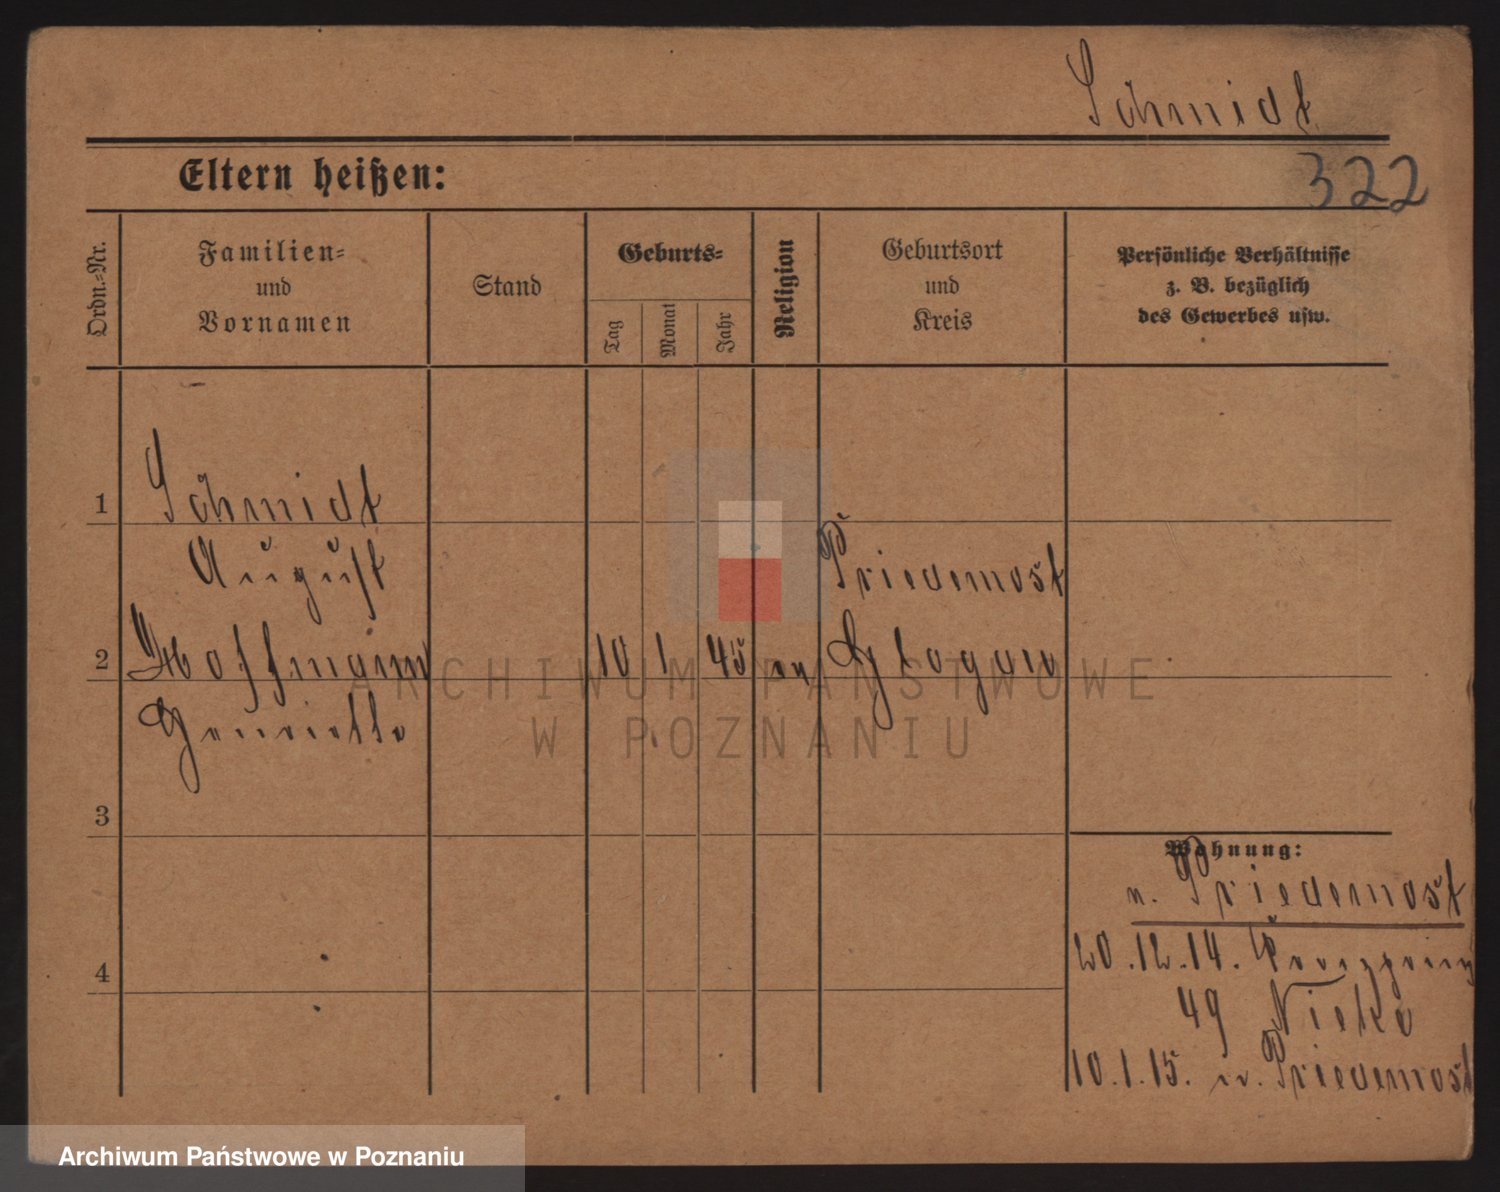 Schmidt
Eltern heißen:
322
Ordn.-Nr.
Familien-
und
Vornamen
Stand
Geburts-
Tag
Monat
Jahr
Religion
Geburtsort
und
Kreis
Persönliche Verhältnisse
z. B. bezüglich
des Gewerbes usw.
1
Schmidt
August
Priedemost
2
Hoffmann
10 1 45 ev Glogau
Henriette
3
Wohnung:
n. Priedemost
20.12.14.
4
49
10.1.15. n. Priedemost
ARCHIWUM PAŃSTWOWE
W POZNANIU
Archiwum Państwowe w Poznaniu